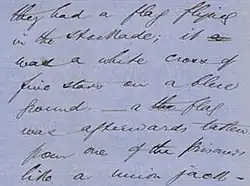 they had a flag flying
in the stockade; it a
was a white cross of
five stars on a blue
ground. – a the flag
was afterwards taken
from one of the Prisoners
like a union jack –